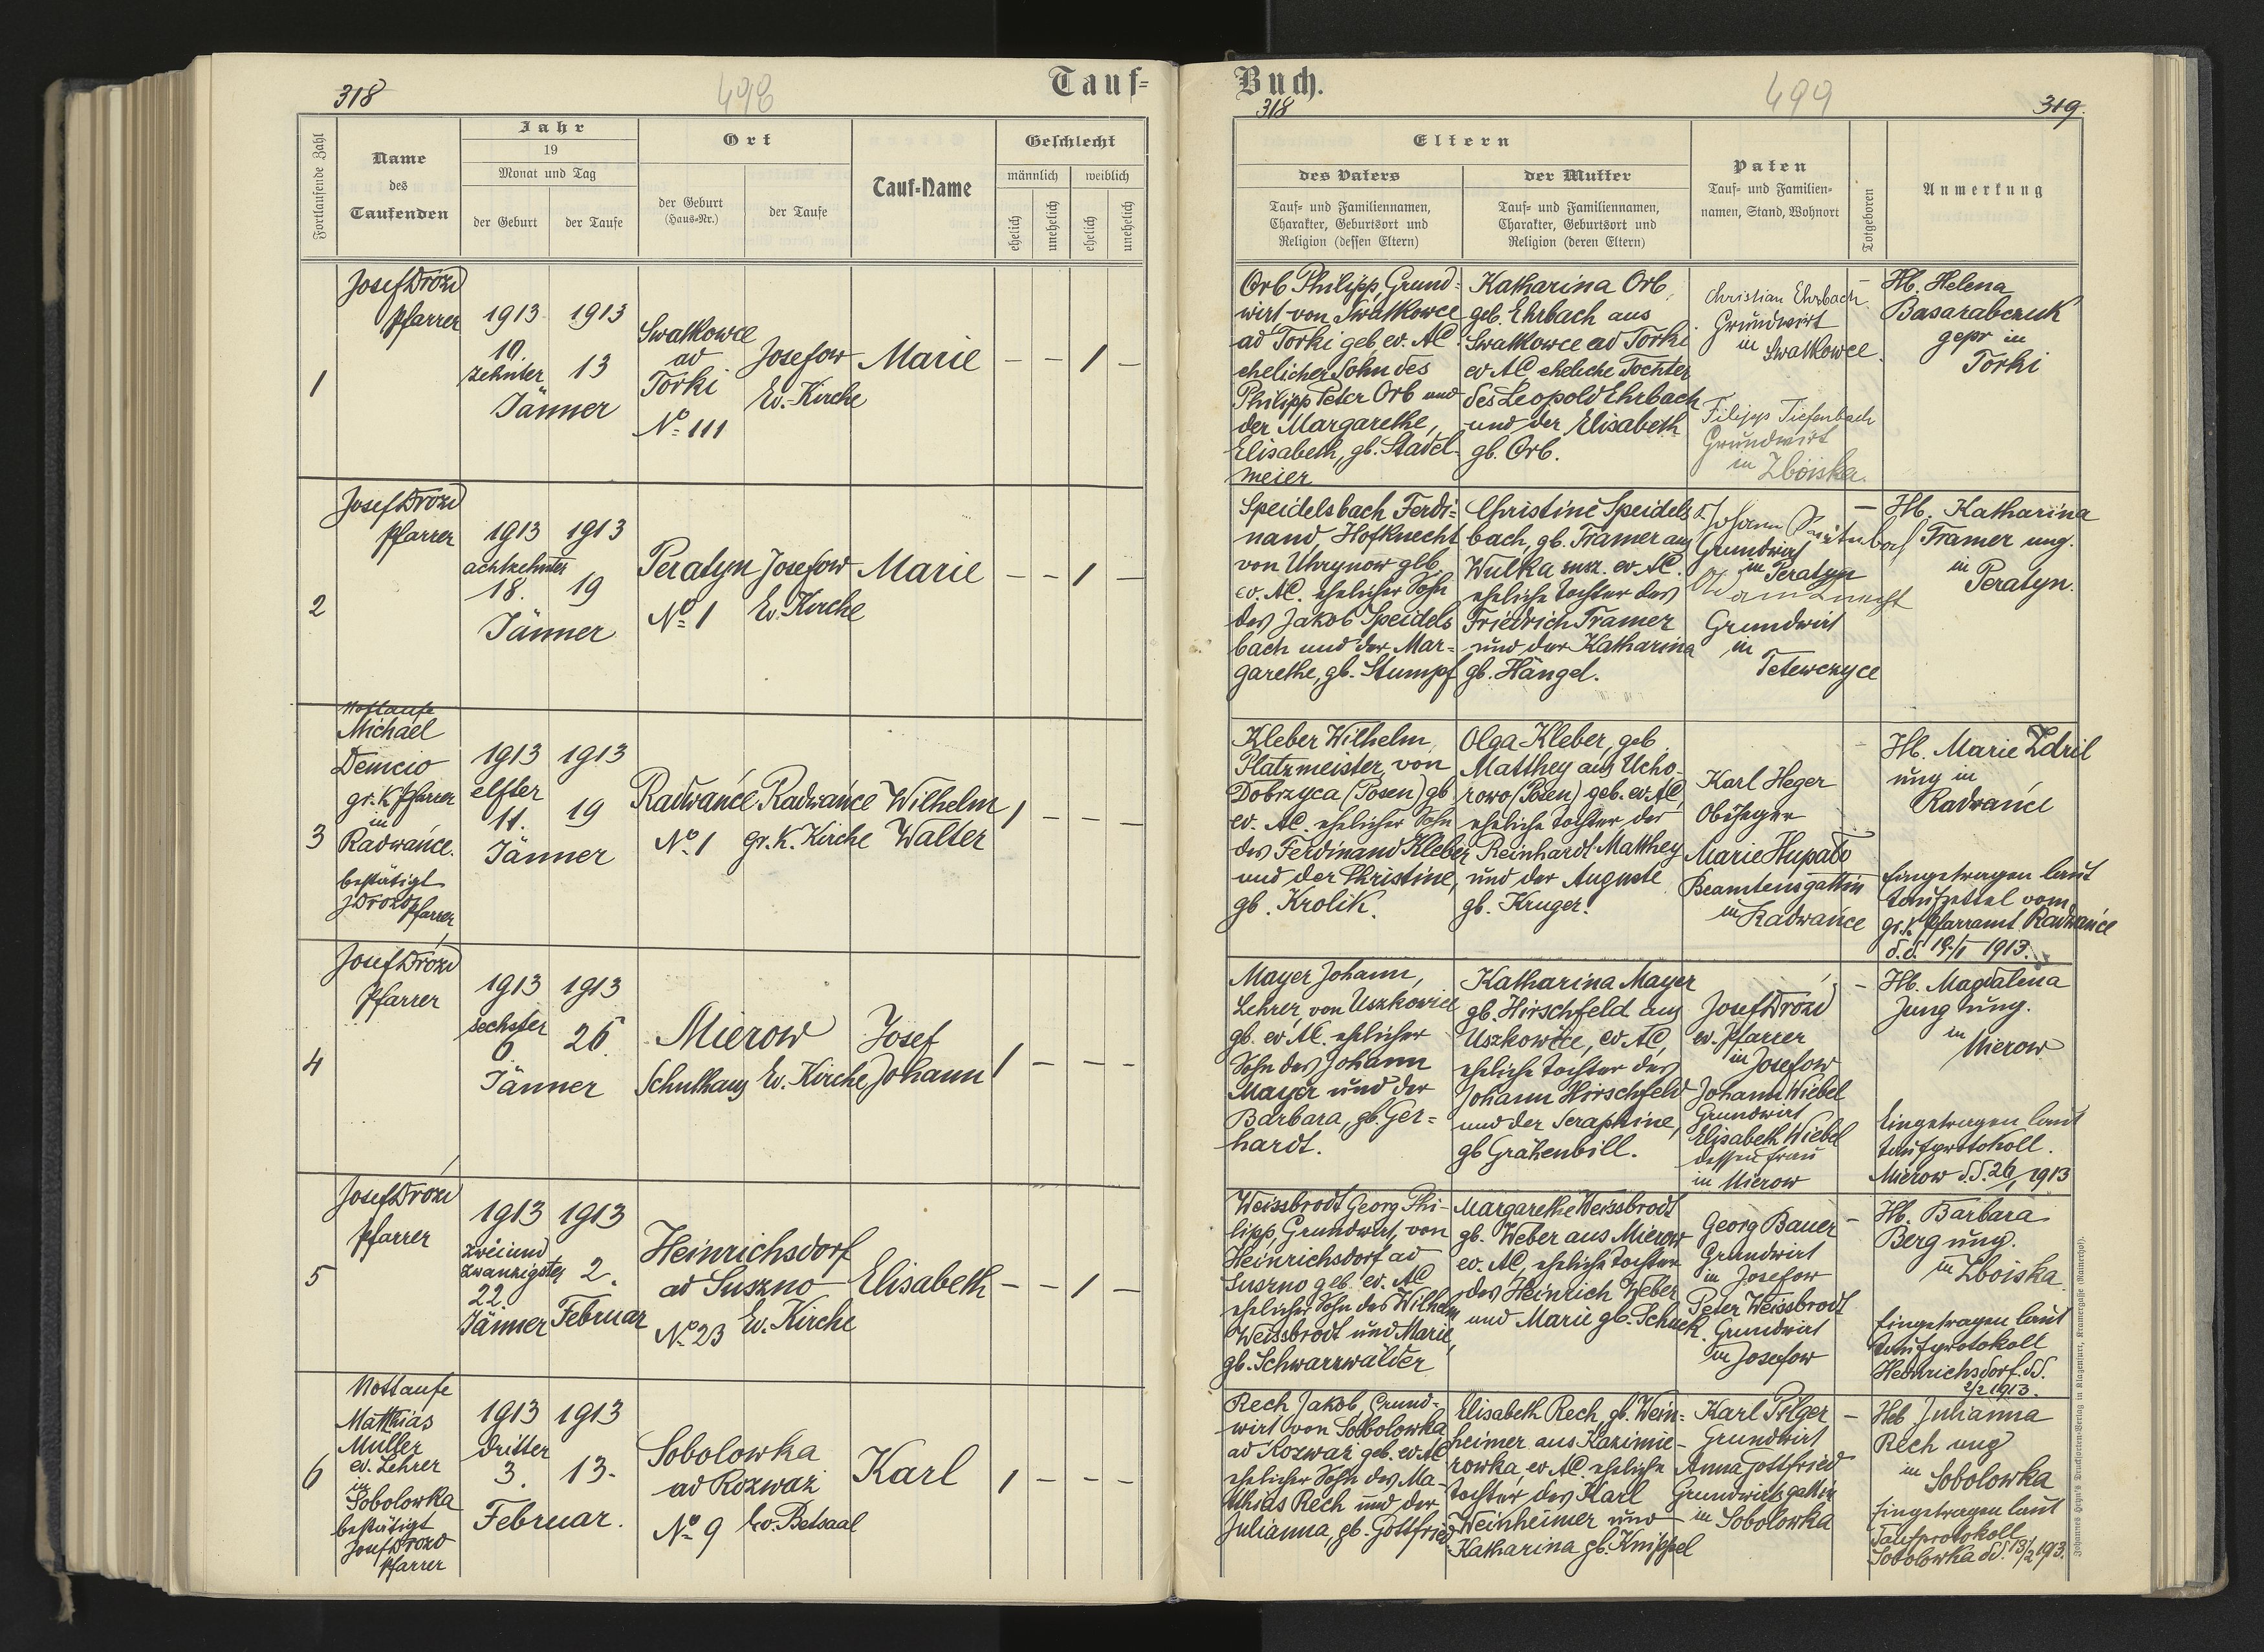 318
498
Tauf=
Fortlaufende Zahl
Name
des
Taufenden
Jahr
19
Monat und Tag
der Geburt
der Taufe
Ort
der Geburt
(Haus-Nr.)
der Taufe
Tauf-Name
Geschlecht
männlich
weiblich
ehelich
unehelich
ehelich
unehelich
1
Josef Drozd
Pfarrer
1913
10.
zehnter
Jänner
1913
13
Swatkowce
ad
Torki
No 111
Josefow
Ev.-Kirche
Marie
– – 1 –
2
Josef Drozd
Pfarrer
1913
achtzehnter
18.
Jänner
1913
19
Peratyn
No 1
Josefow
Ev. Kirche
Marie
– – 1 –
3
Nottaufe
Michael
Demcio
gr. K Pfarrer
in
Radwańce.
bestätigt
JDrozd
Pfarrer
1913
elfter
11.
Jänner
1913
19
Radwańce
No 1
Radwańce
gr. K. Kirche
Wilhelm
Walter
1 – – –
4
Josef Drozd
Pfarrer
1913
sechster
6
Jänner
1913
26
Mierow
Schulhaus
Ev. Kirche
Josef
Johann
1 – – –
5
Josef Drozd
Pfarrer
1913
zweiund
zwanzigster
22.
Jänner
1913
2.
Februar
Heinrichsdorf
ad Suszno
No 23
Ev. Kirche
Elisabeth
– – 1 –
6
Nottaufe
Matthias
Müller
ev. Lehrer
in
Sobolowka
bestätigt
Josef Drozd
Pfarrer
1913
dritter
3.
Februar.
1913
13.
Sobolowka
ad Rozwaz
No 9
Ev. Betsaal
Karl
1 – – –
Buch.
318
499
319.
Eltern
des Vaters
Tauf- und Familiennamen,
Charakter, Geburtsort und
Religion (dessen Eltern)
der Mutter
Tauf- und Familiennamen,
Charakter, Geburtsort und
Religion (deren Eltern)
Paten
Tauf- und Familien-
namen, Stand, Wohnort
Totgeboren
Anmerkung
Orb Philipp, Grund=
wirt von Swatkowce
ad Torki geb. ev. AC.
ehelicher Sohn des
Philipp Peter Orb und
der Margarethe,
Elisabeth, gb. Stadel-
meier
Katharina Orb,
geb. Ehrbach aus
Swatkowce ad Torki
ev AC eheliche Tochter
des Leopold Ehrbach
und der Elisabeth
gb. Orb.
Christian Ehrbach
Grundwirt
in Swatkowce.
Filipp Tiefenbach
Grundwirt
in Zboiska.
–
Hb. Helena
Basarabczuk
gepr in
Torki
Speidelsbach Ferdi=
nand, Hofknecht
von Uhrynow geb.
ev. AC. ehelicher Sohn
des Jakob Speidels
bach und der Mar=
garethe, gb. Stumpf
Christine Speidels
bach, gb. Tramer aus
Wulka susz. ev. AC.
eheliche Tochter des
Friedrich Tramer
und der Katharina
gb. Hängel.
Johann
Grundwirt
in Peratyn
Grundwirt
in
Tetewczyce
–
Hb. Katharina
Tramer ung.
in
Peratyn.
Kleber Wilhelm,
Platzmeister, von
Dobrzyca (Posen) gb
ev. AC. ehelicher Sohn
des Ferdinand Kleber
und der Christine,
gb. Krolik.
Olga Kleber, geb.
Matthey aus Ucho-
rowo (Posen) geb. ev. AC,
eheliche Tochter des
Reinhardt Matthey
und der Auguste
gb. Kruger.
Karl Heger
Marie Hupalo
Beamtensgattin
in Radwańce
–
Hb. Marie Zdril
ung in
Radwańce
Eingetragen laut
Taufzettel vom
gr. K. Pfarramt Radwańce
d.d. 19/I 1913.
Mayer Johann,
Lehrer, von Uszkowice
gb. ev. AC. ehelicher
Sohn des Johann
Mayer und der
Barbara, gb. Ger=
hardt.
Katharina Mayer
gb. Hirschfeld aus
Uszkowice, ev. AC,
eheliche Tochter des
Johann Hirschfeld
und der Seraphine,
gb Grähenbill.
Josef Drozd
ev. Pfarrer
in Josefow
Johann Wiebel
Grundwirt
Elisabeth Wiebel
dessen Frau
in Mierow
–
Hb. Magdalena
Jung ung.
in
Mierow
Eingetragen laut
Taufprotokoll.
Mierow d.d. 26/1 1913
Weissbrodt Georg Phi-
lipp, Grundwirt, von
Heinrichsdorf ad
Suszno geb. ev. AC
ehelicher Sohn des Wilhelm
Weissbrodt und Marie,
gb. Schwarzwälder
Margarethe Weissbrodt
gb. Weber aus Mierow
ev. AC, eheliche Tochter
des Heinrich Weber
und Marie gb. Schuck.
Georg Bauer
Grundwirt
in Josefow
Peter Weissbrodt
Grundwirt
in Josefow
–
Hb. Barbara
Berg ung.
in Zboiska
Eingetragen laut
Taufprotokoll
Heinrichsdorf. dd.
2/2 1913.
Rech Jakob, Grund=
wirt von Sobolowka
ad Rozwaz geb. ev. AC
ehelicher Sohn des Ma-
thias Rech und der
Julianna, gb. Gottfried
Elisabeth Rech, gb. Wein=
heimer aus Kazimie-
rowka, ev AC. eheliche
Tochter des Karl
Weinheimer und
Katharina gb. Knippel
Karl Pilger
Grundwirt
Anna Gottfried
Grundwirtsgattin
in Sobolowka
–
Heb. Julianna
Rech ung
in
Sobolowka
Eingetragen laut
Taufprotokoll
Sobolowka dd. 13/2 1913.
Johannes Heyn's Drucksorten-Verlag in Klagenfurt, Kramergasse (Rainerhof).